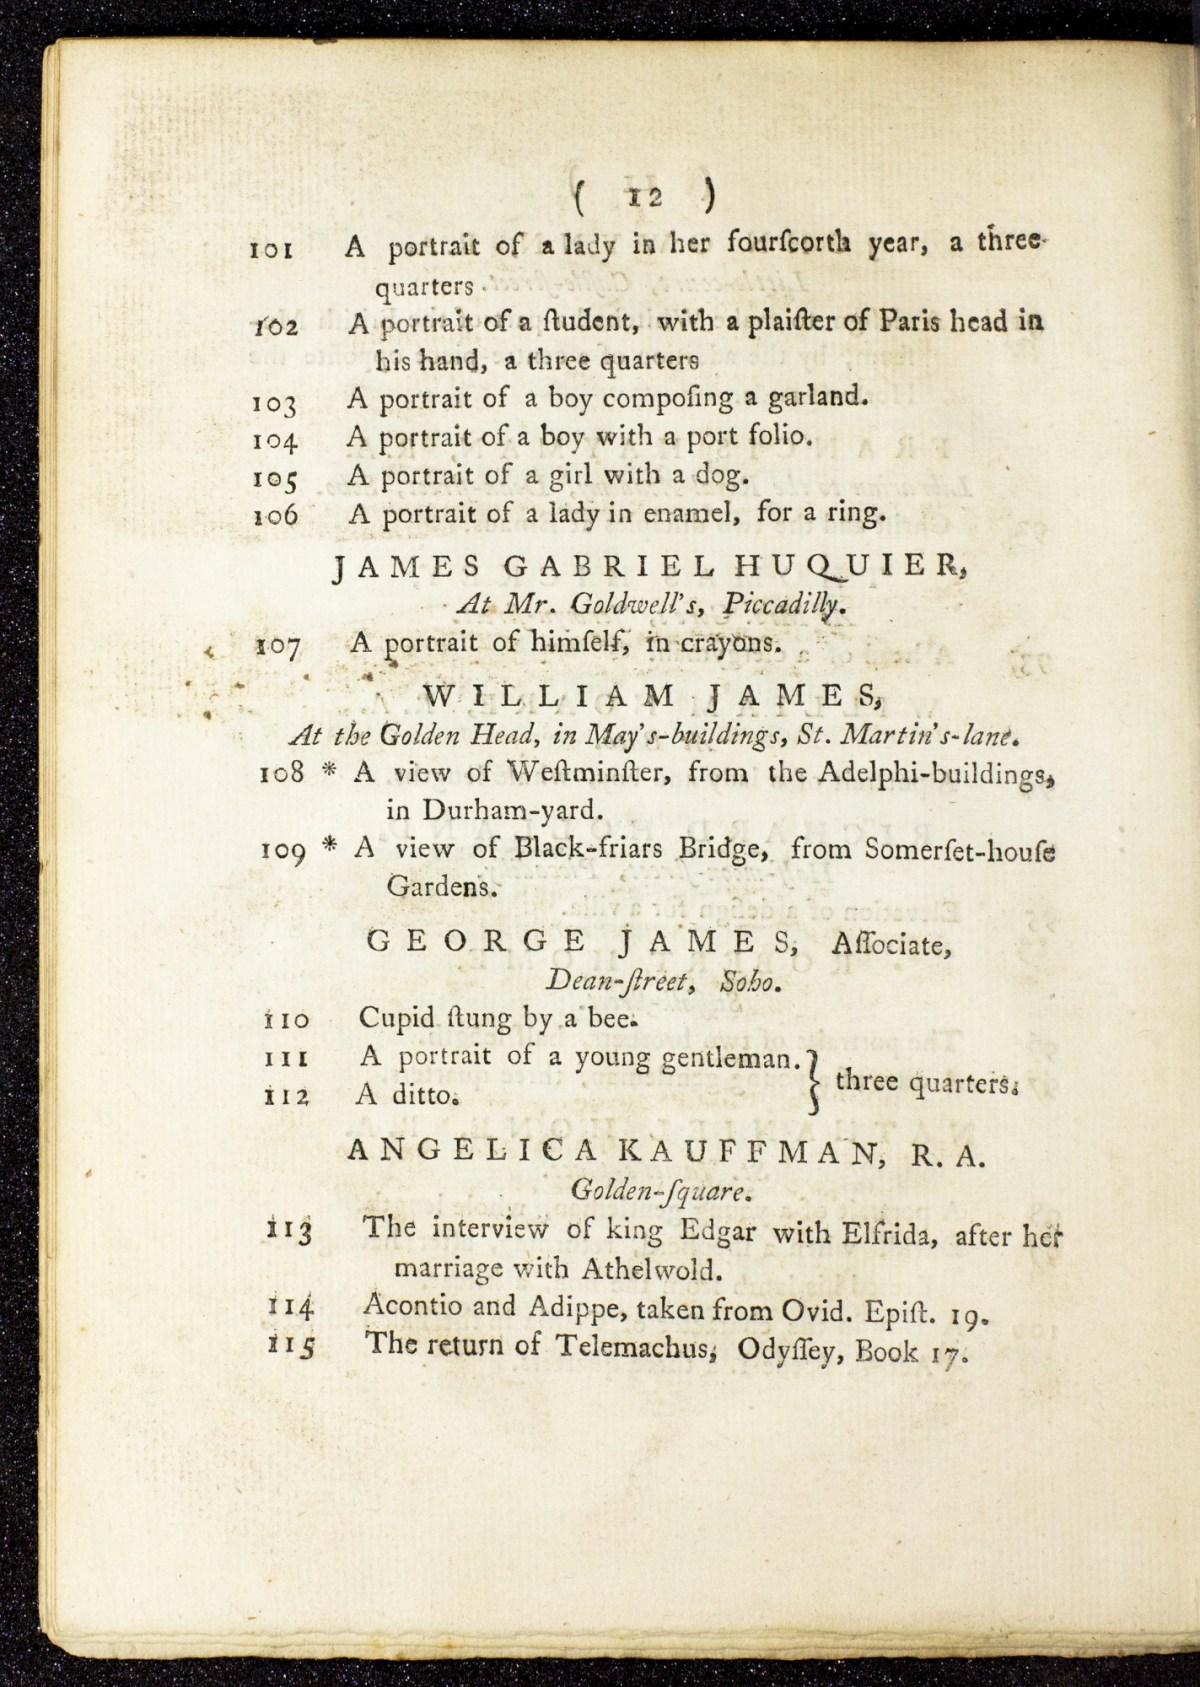 ( 12 )
101 A portrait of a lady in her fourſcorth year, a three-
quarters
102 A portrait of a ſtudent, with a plaiſter of Paris head in
his hand, a three quarters
103 A portrait of a boy compoſing a garland.
104 A portrait of a boy with a port folio.
105 A portrait of a girl with a dog.
106 A portrait of a lady in enamel, for a ring.
JAMES GABRIEL HUQUIER,
At Mr. Goldwell's, Piccadilly.
107 A portrait of himſelf, in crayons.
WILLIAM JAMES,
At the Golden Head, in May's-buildings, St. Martin's-lane.
108 * A view of Weſtminſter, from the Adelphi-buildings,
in Durham-yard.
109 * A view of Black-friars Bridge, from Somerſet-houſe
Gardens.
GEORGE JAMES, Aſſociate,
Dean-ſtreet, Soho.
110 Cupid ſtung by a bee.
111 A portrait of a young gentleman. } three quarters.
112 A ditto.
ANGELICA KAUFFMAN, R. A.
Golden-ſquare.
113 The interview of king Edgar with Elfrida, after her
marriage with Athelwold.
114 Acontio and Adippe, taken from Ovid. Epiſt. 19.
115 The return of Telemachus, Odyſſey, Book 17.